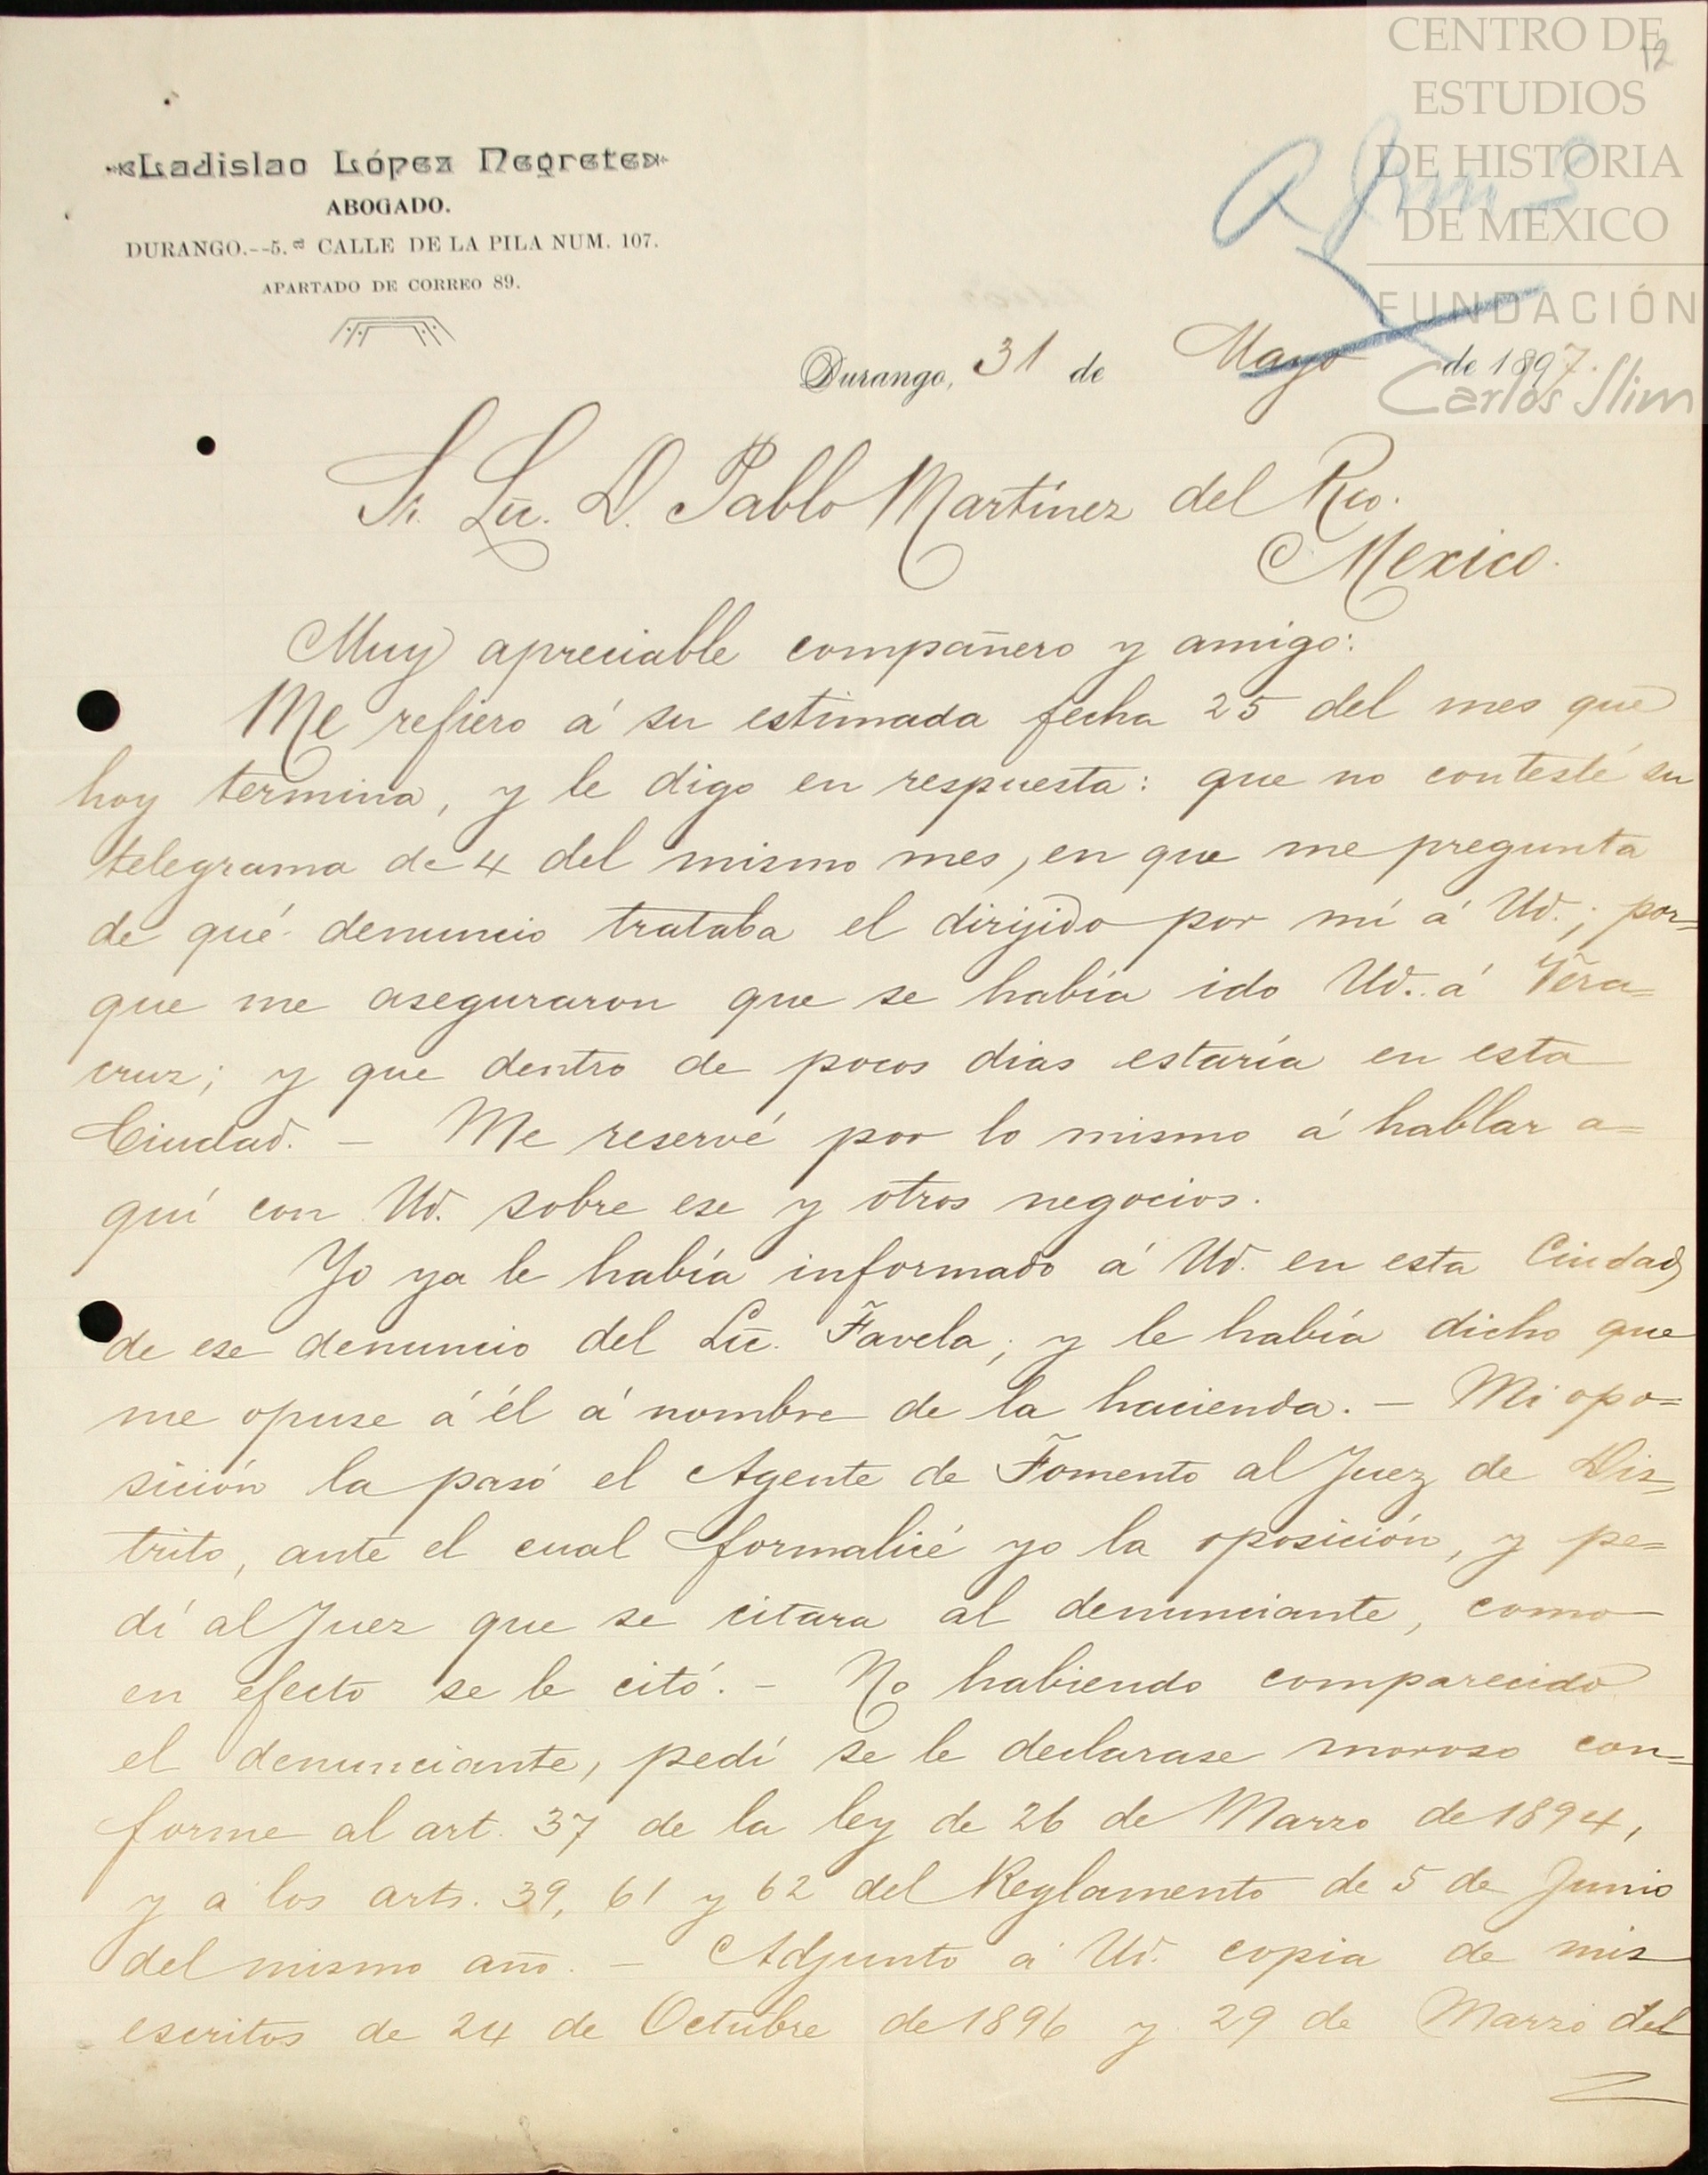 CENTRO DE
ESTUDIOS
DE HISTORIA
DE MEXICO
FUNDACIÓN
Carlos Slim
12
Ladislao López Negrete
ABOGADO.
DURANGO.--5.ª CALLE DE LA PILA NUM. 107.
APARTADO DE CORREO 89.
Durango, 31 de Mayo de 1897.
Sr. Lic. D. Pablo Martínez del Rio.
Mexico.
Muy apreciable compañero y amigo:
Me refiero á su estimada fecha 25 del mes que
hoy termina, y le digo en respuesta: que no contesté su
telegrama de 4 del mismo mes, en que me pregunta
de qué denuncio trataba el dirijido por mí á Ud.; por=
que me aseguraron que se había ido Ud. á Vera=
cruz; y que dentro de pocos dias estaría en esta
Ciudad. – Me reservé por lo mismo á hablar a=
quí con Ud. sobre ese y otros negocios.
Yo ya le había informado á Ud. en esta Ciudad,
de ese denuncio del Lic. Favela; y le había dicho que
me opuse á él á nombre de la hacienda. – Mi opo=
sición la pasó el Agente de Fomento al Juez de Dis=
trito, ante el cual formalicé yo la oposición, y pe=
dí al Juez que se citara al denunciante, como
en efecto se le citó. – No habiendo comparecido
el denunciante, pedí se le declarase moroso con=
forme al art. 37 de la ley de 26 de Marzo de 1894,
y a los arts. 39, 61 y 62 del Reglamento de 5 de Junio
del mismo año. – Adjunto á Ud. copia de mis
escritos de 24 de Octubre de 1896 y 29 de Marzo del